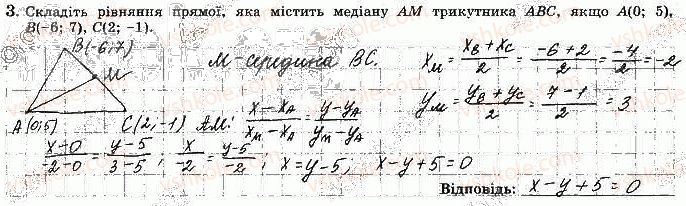 3. Складіть рівняння прямої, яка містить медіану AM трикутника ABC, якщо A(0; 5),
B(-6; 7), C(2; -1).
B(-6;7)
M
M - середина BC.
x_M = (x_B + x_C)/2 = (-6+2)/2 = -4/2 = -2
y_M = (y_B + y_C)/2 = (7-1)/2 = 3
A(0;5) C(2,-1) AM: (x-x_A)/(x_M-x_A) = (y-y_A)/(y_M-y_A)
(x-0)/(-2-0) = (y-5)/(3-5); x/-2 = (y-5)/-2; x=y-5; x-y+5=0
Відповідь: x-y+5=0